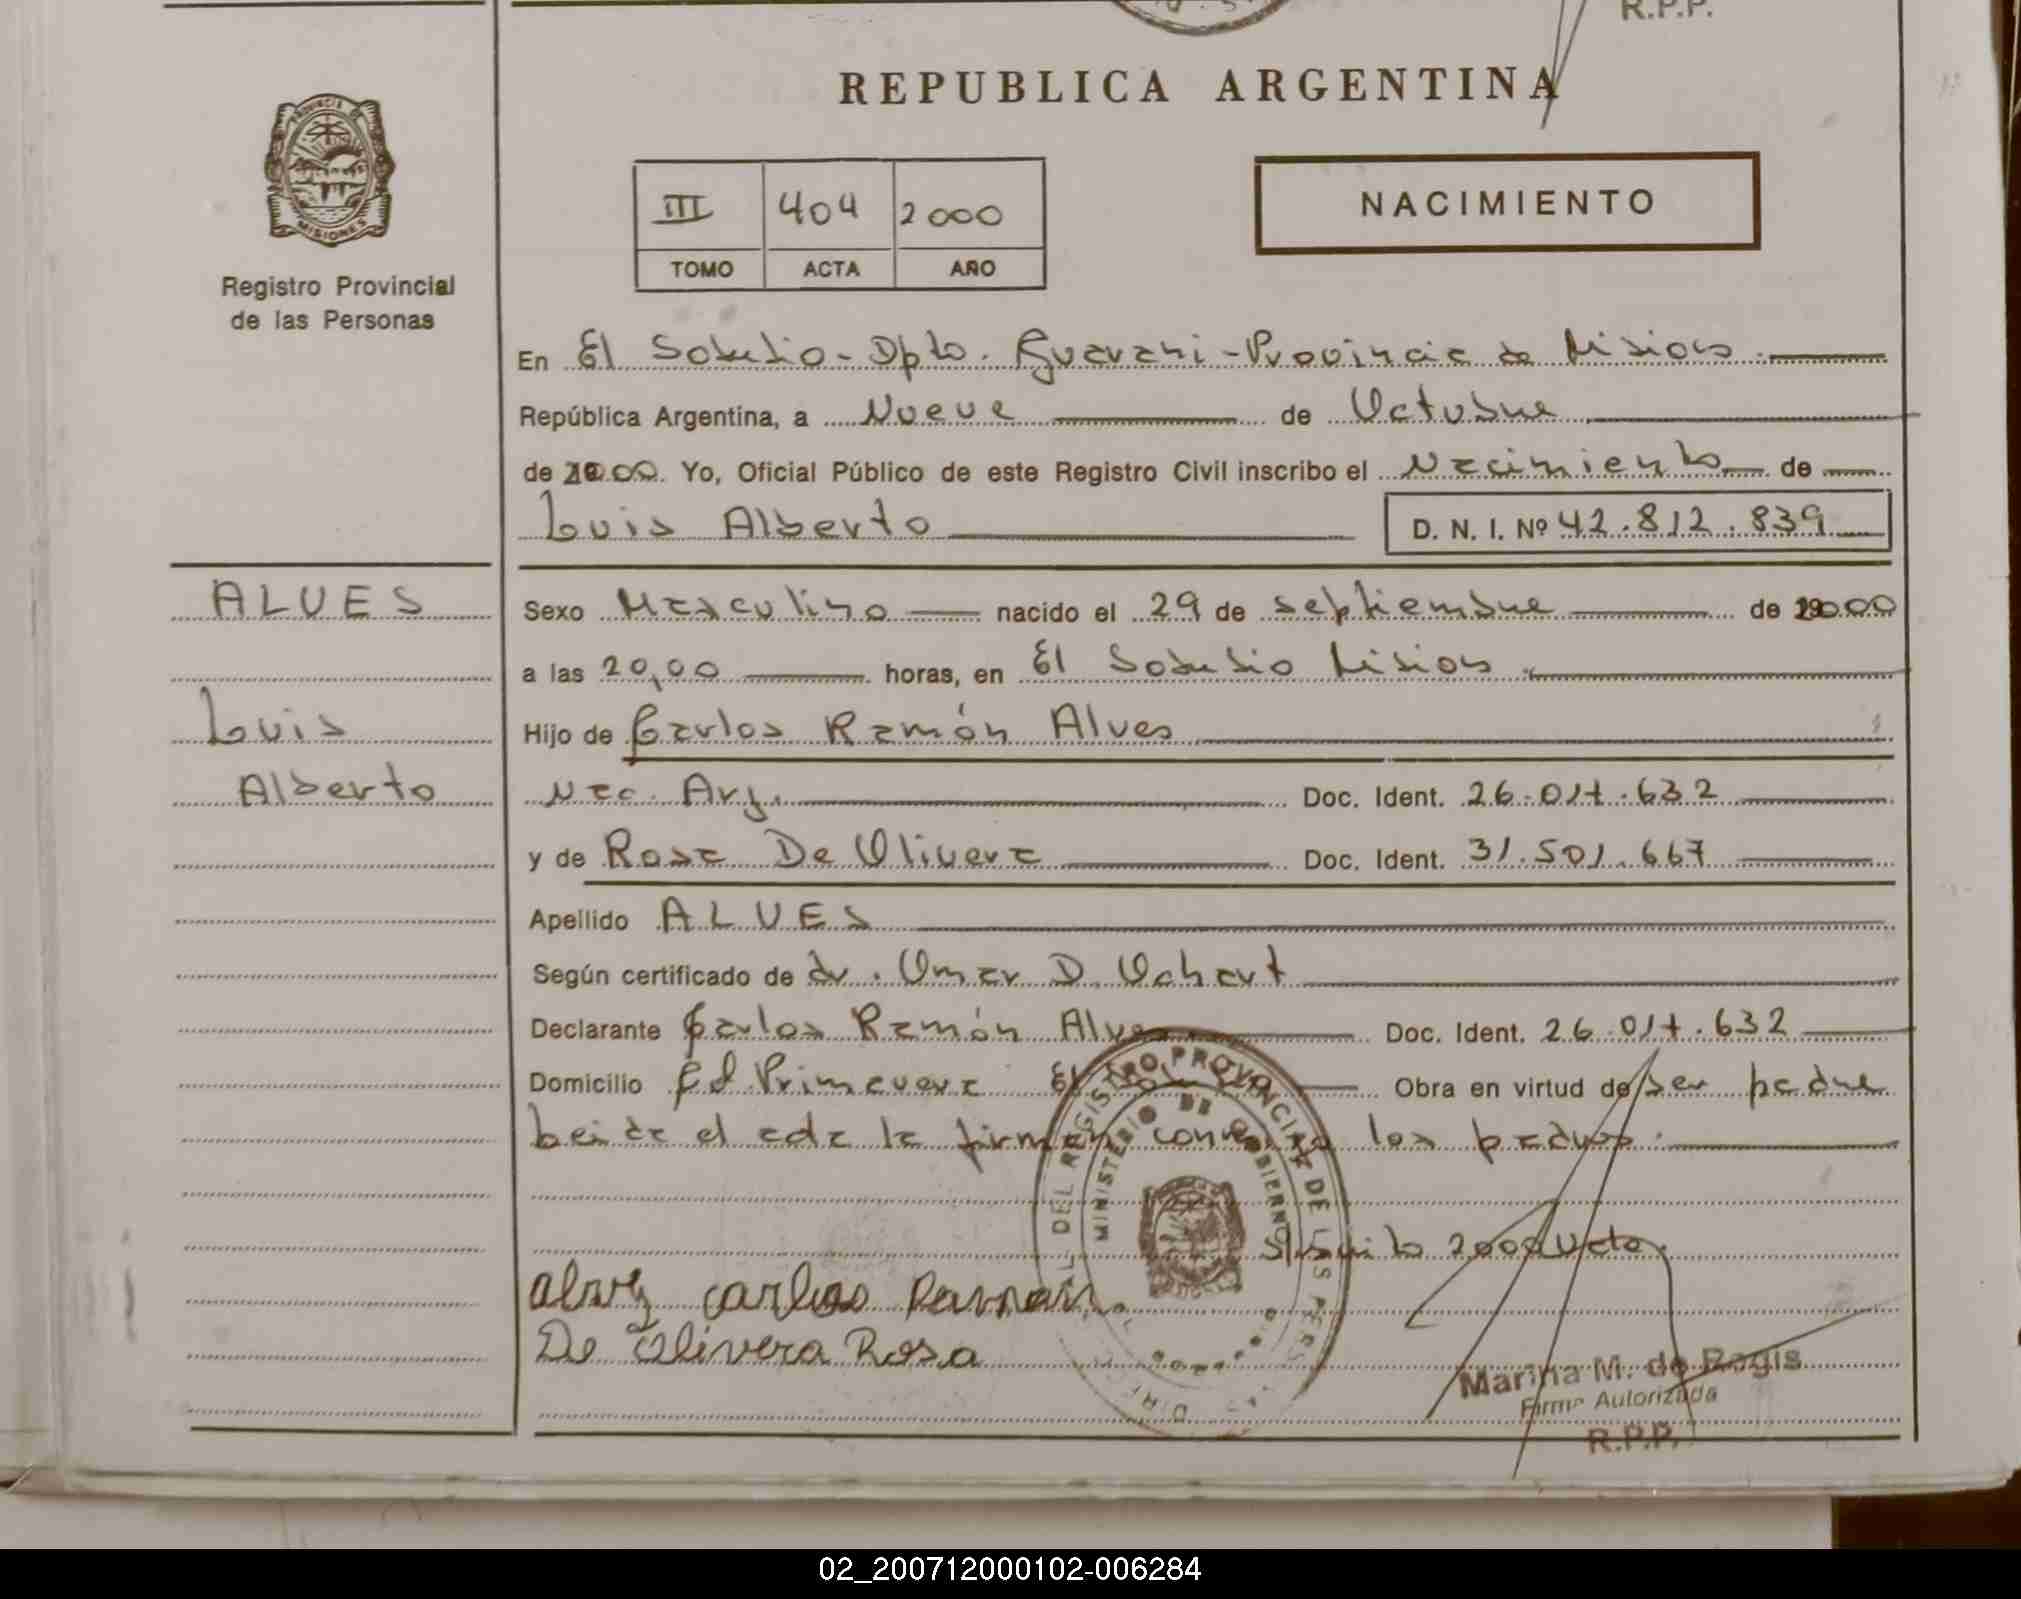 R.P.P.
REPUBLICA ARGENTINA
PROVINCIA DE
MISIONES
Registro Provincial
de las Personas
III 404 2000
TOMO ACTA AÑO
NACIMIENTO
En El Soberbio - Dpto. Guarani - Provincia de Misiones.
República Argentina, a Nueve de Octubre
de 2000. Yo, Oficial Público de este Registro Civil inscribo el Nacimiento de
Luis Alberto D. N. I. Nº 42.812.839
ALVES
Luis
Alberto
Sexo Masculino nacido el 29 de septiembre de 2000
a las 20,00 horas, en El Soberbio Misiones.
Hijo de Carlos Ramón Alves
Nac. Arg. Doc. Ident. 26.017.632
y de Rosa De Olivera Doc. Ident. 31.501.667
Apellido ALVES
Según certificado de dr. Omar D. Ochart
Declarante Carlos Ramón Alves Doc. Ident. 26.017.632
Domicilio Primavera El Obra en virtud de ser padre
Leida el acta la firman los padres.
2000
Alvez Carlos Ramon
De Olivera Rosa
DEL REGISTRO PROVINCIAL DE LAS PERS
MINISTERIO DE GOBIERNO
Marina M. de Regis
Firma Autorizada
R.P.P.
02_200712000102-006284